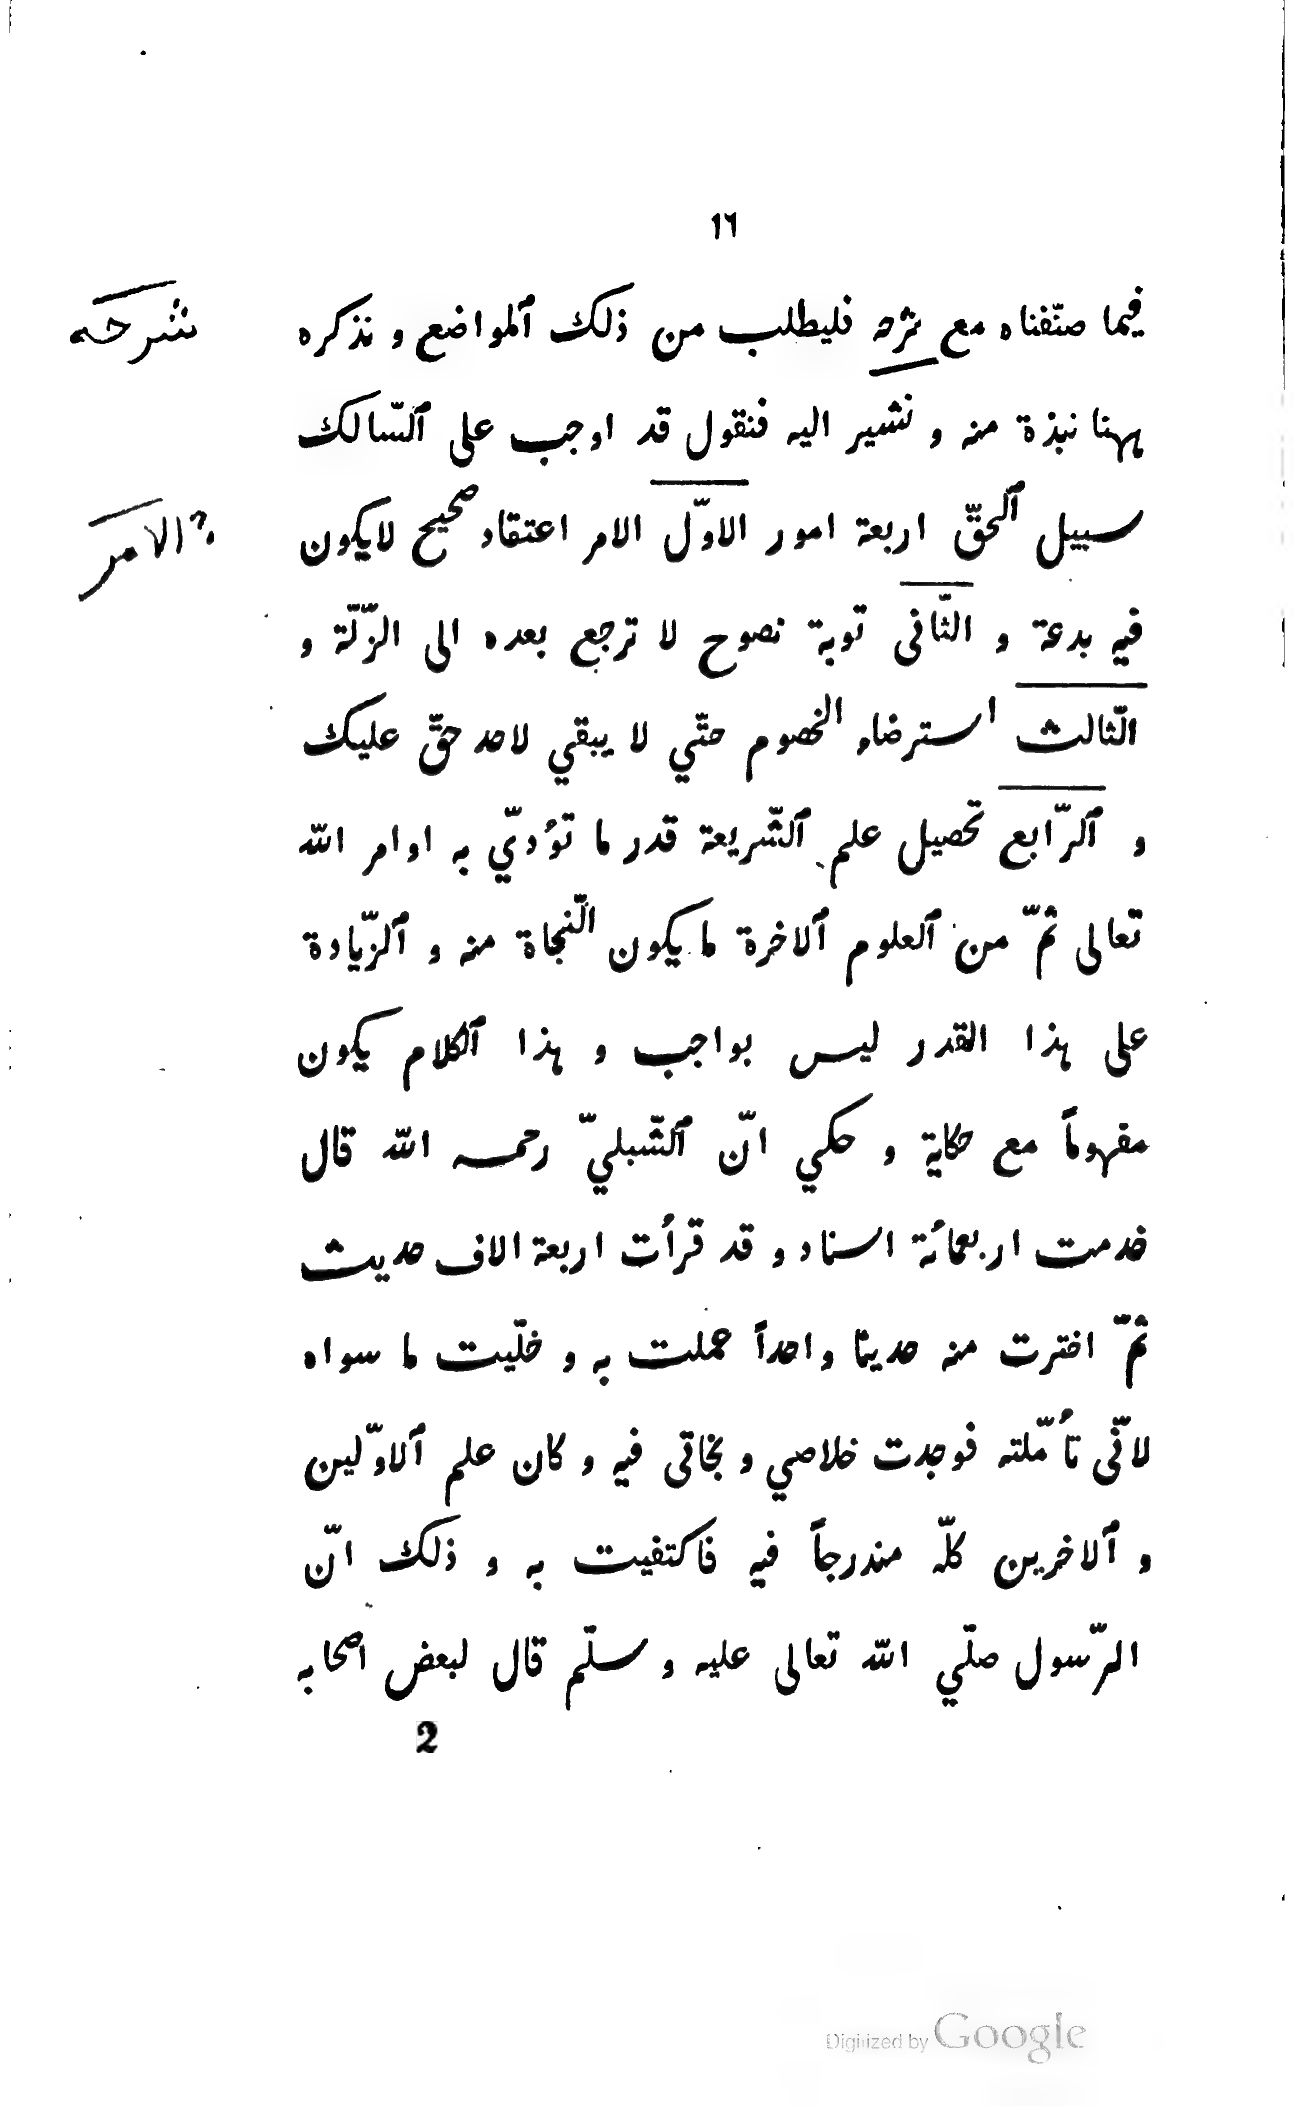 ١٦
فيما صنّفناه مع ثرحه فليطلب من ذلك ٱلمواضع و نذكره
شرحه
ههنا نبذة منه و نشير اليه فنقول قد اوجب على ٱلسّالك
سبيل ٱلحقّ اربعة امور الاوّل الامر اعتقاد صحيح لايكون
? الامر
فيه بدعة و الثّانى توبة نصوح لا ترجع بعده الى الزّلّة و
الثّالث استرضاء الخصوم حتّي لا يبقي لاحد حقّ عليك
و ٱلرّابع تحصيل علم ٱلشّريعة قدر ما تؤدّي به اوامر الله
تعالى ثمّ من ٱلعلوم ٱلاخرة ما يكون النّجاة منه و ٱلزّيادة
على هذا القدر ليس بواجب و هذا ٱلكلام يكون
مفهوماً مع حكاية و حكي انّ ٱلشّبليّ رحمه الله قال
خدمت اربعمائة استاد و قد قرأت اربعة الاف حديث
ثمّ اخترت منه حديثا واحداً عملت به و خلّيت ما سواه
لانّى تأمّلته فوجدت خلاصي و نجاتى فيه و كان علم ٱلاوّلين
و ٱلاخرين كلّه مندرجاً فيه فاكتفيت به و ذلك انّ
الرّسول صلّي الله تعالى عليه و سلّم قال لبعض اصحابه
2
Digitized by Google